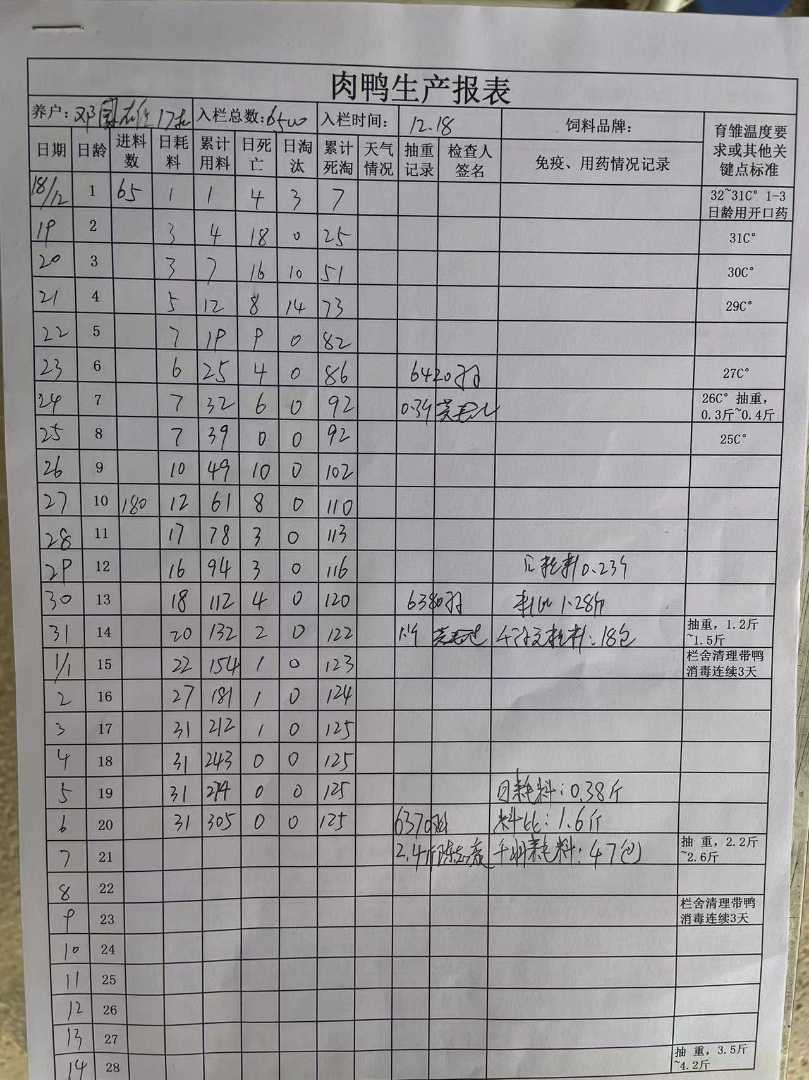 肉鸭生产报表
养户: 邓国 17 入栏总数: 6500 入栏时间: 12.18 饲料品牌: 育雏温度要求或其他关键点标准
日期 日龄 进料数 日耗料 累计用料 日死亡 日淘汰 累计死淘 天气情况 抽重记录 检查人签名 免疫、用药情况记录
18/12 1 65 1 1 4 3 7 32~31C° 1-3日龄用开口药
19 2 3 4 18 0 25 31C°
20 3 3 7 16 10 51 30C°
21 4 5 12 8 14 73 29C°
22 5 7 19 9 0 82
23 6 6 25 4 0 86 6420 27C°
24 7 7 32 6 0 92 0.39 26C° 抽重,0.3斤~0.4斤
25 8 7 39 0 0 92 25C°
26 9 10 49 10 0 102
27 10 180 12 61 8 0 110
28 11 17 78 3 0 113
29 12 16 94 3 0 116 耗料0.23斤
30 13 18 112 4 0 120 6380 料比1.28斤
31 14 20 132 2 0 122 耗料:18包 抽重,1.2斤~1.5斤
1/1 15 22 154 1 0 123 栏舍清理带鸭消毒连续3天
2 16 27 181 1 0 124
3 17 31 212 1 0 125
4 18 31 243 0 0 125
5 19 31 274 0 0 125 日耗料:0.38斤
6 20 31 305 0 0 125 6370 料比:1.6斤
7 21 2.4斤 耗料:47包 抽 重,2.2斤~2.6斤
8 22
9 23 栏舍清理带鸭消毒连续3天
10 24
11 25
12 26
13 27
14 28 抽 重,3.5斤~4.2斤